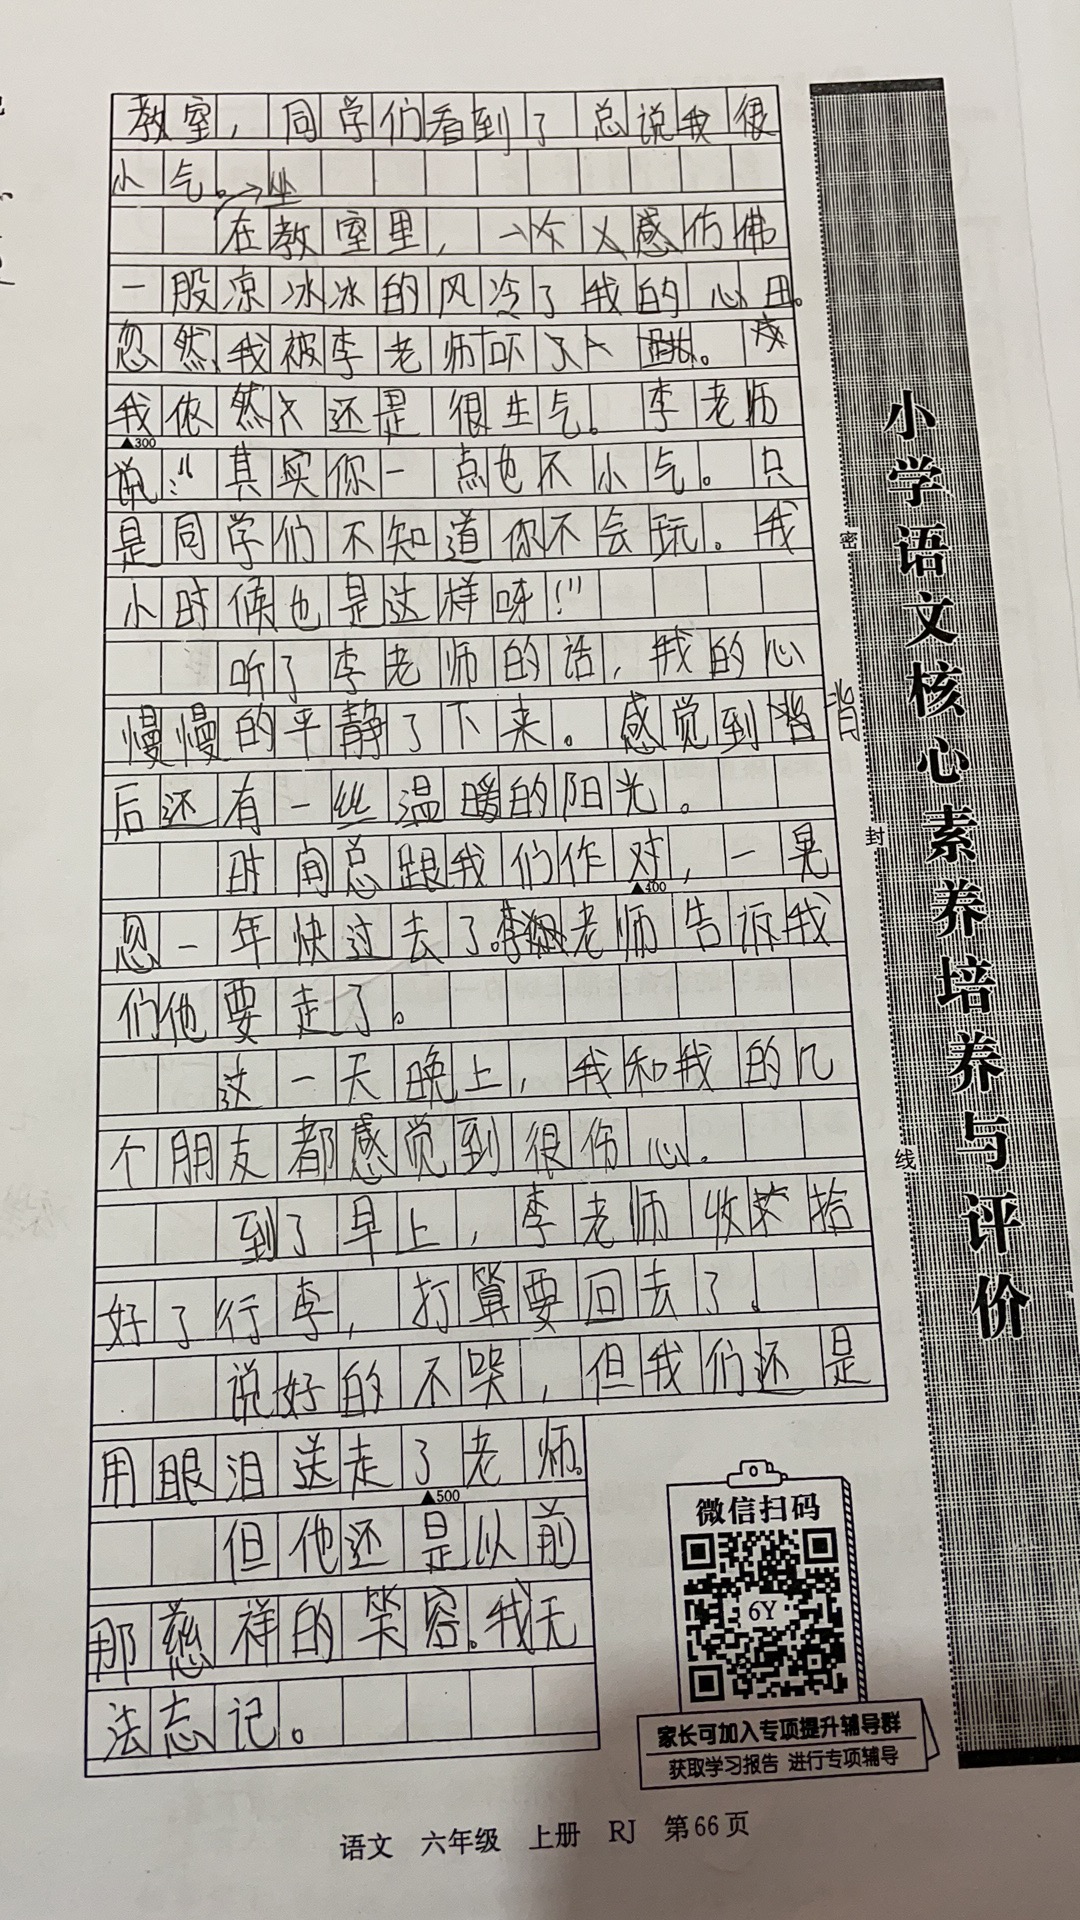 教室，同学们看到了总说我很
小气。
坐
在教室里，一个人感伤佛
一股凉冰冰的风冷了我的心田。
忽然，我被李老师吓了一跳。
我依然还是很生气。李老师
▲300
说：“其实你一点也不小气。只
是同学们不知道你不会玩。我
小时候也是这样呀！”
听了李老师的话，我的心
慢慢的平静了下来。感觉到背
背
后还有一丝温暖的阳光。
时间总跟我们作对，一晃
▲400
忽一年快过去了。李老师告诉我
们他要走了。
这一天晚上，我和我的几
个朋友都感觉到很伤心。
到了早上，李老师收拾
好了行李，打算要回去了。
说好的不哭，但我们还是
用眼泪送走了老师。
▲500
但他还是以前
那慈祥的笑容。我无
法忘记。
小学语文核心素养培养与评价
密
封
线
微信扫码
6Y
家长可加入专项提升辅导群
获取学习报告 进行专项辅导
语文 六年级 上册 RJ 第66页